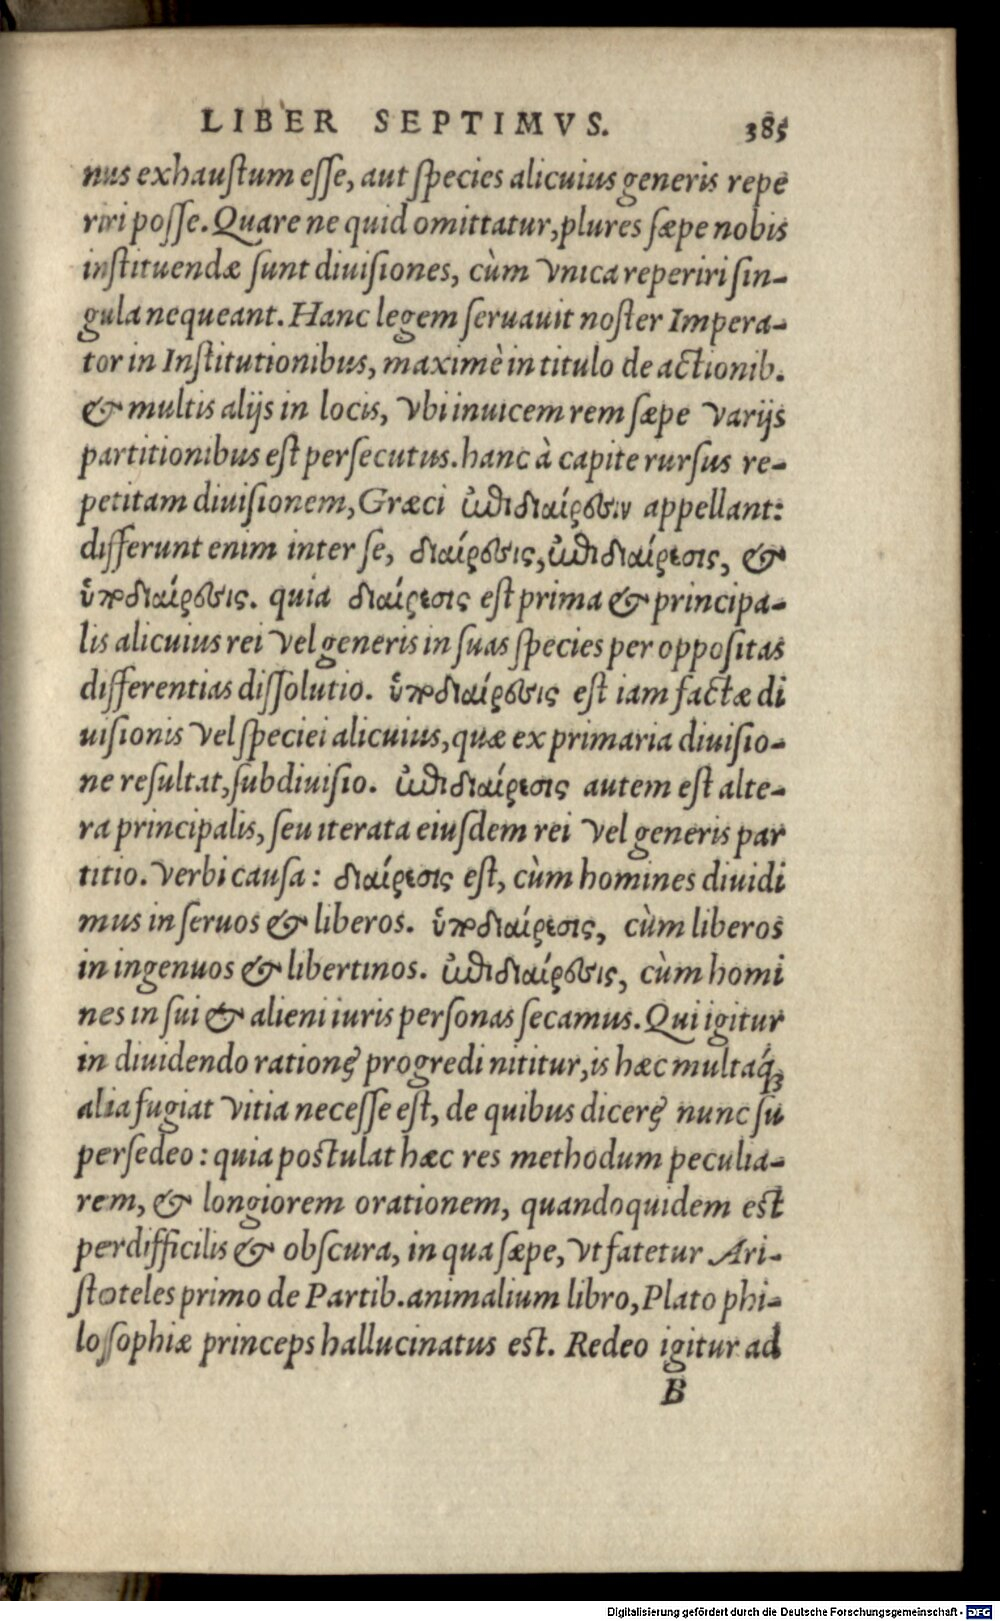 LIBER SEPTIMVS. 385
nus exhaustum esse, aut species alicuius generis repe
riri posse. Quare ne quid omittatur, plures sæpe nobis
instituendæ sunt diuisiones, cùm vnica reperiri sin-
gula nequeant. Hanc legem seruauit noster Impera-
tor in Institutionibus, maximè in titulo de actionib.
& multis alijs in locis, vbi inuicem rem sæpe varijs
partitionibus est persecutus. hanc à capite rursus re-
petitam diuisionem, Græci ἐπιδιαίρεσιν appellant:
differunt enim inter se, διαίρεσις, ἐπιδιαίρεσις, &
ὑποδιαίρεσις. quia διαίρεσις est prima & principa-
lis alicuius rei vel generis in suas species per oppositas
differentias dissolutio. ὑποδιαίρεσις est iam factæ di
uisionis vel speciei alicuius, quæ ex primaria diuisio-
ne resultat, subdiuisio. ἐπιδιαίρεσις autem est alte-
ra principalis, seu iterata eiusdem rei vel generis par
titio. verbi causa: διαίρεσις est, cùm homines diuidi
mus in seruos & liberos. ὑποδιαίρεσις, cùm liberos
in ingenuos & libertinos. ἐπιδιαίρεσις, cùm homi
nes in sui & alieni iuris personas secamus. Qui igitur
in diuidendo rationę progredi nititur, is hæc multáq;
alia fugiat vitia necesse est, de quibus dicerę nunc su
persedeo: quia postulat hæc res methodum peculia-
rem, & longiorem orationem, quandoquidem est
perdifficilis & obscura, in qua sæpe, vt fatetur Ari-
stoteles primo de Partib. animalium libro, Plato phi-
losophiæ princeps hallucinatus est. Redeo igitur ad
B
Digitalisierung gefördert durch die Deutsche Forschungsgemeinschaft - DFG